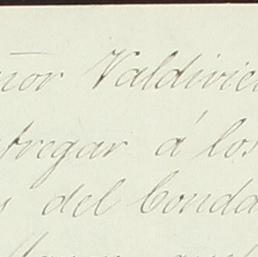 ñor Valdivie
tregar á los
s del Conda